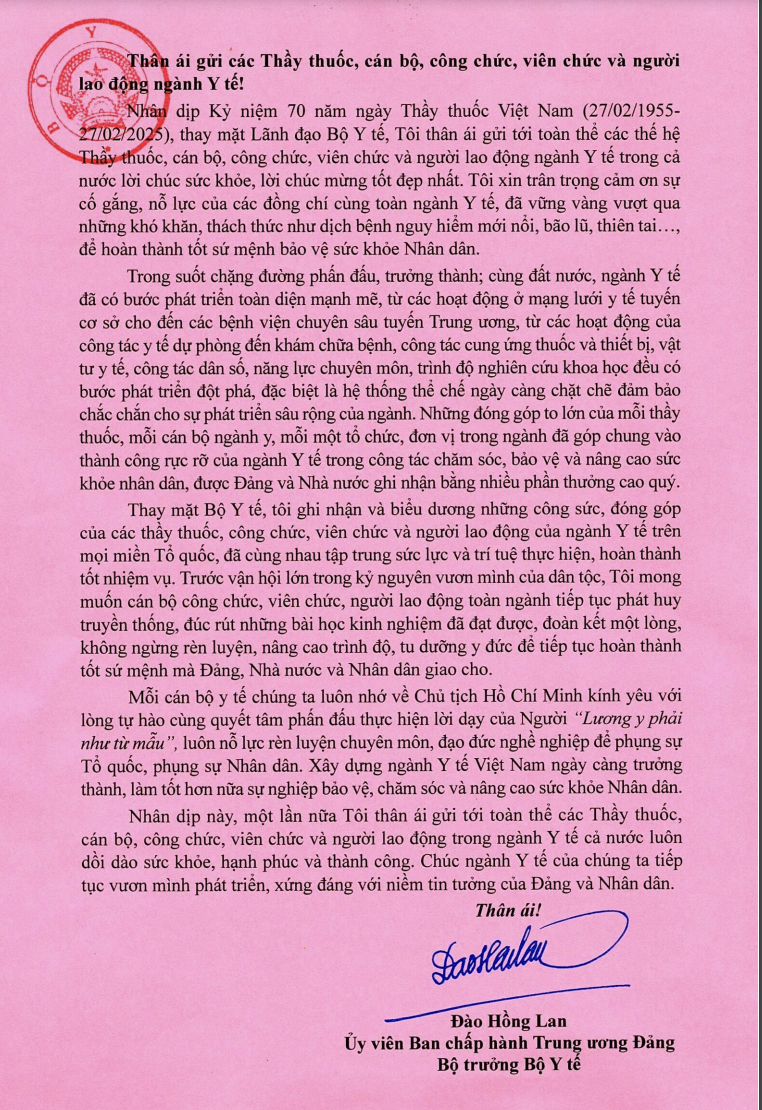 BỘ Y
Thân ái gửi các Thầy thuốc, cán bộ, công chức, viên chức và người
lao động ngành Y tế!
Nhân dịp Kỷ niệm 70 năm ngày Thầy thuốc Việt Nam (27/02/1955-
27/02/2025), thay mặt Lãnh đạo Bộ Y tế, Tôi thân ái gửi tới toàn thể các thế hệ
Thầy thuốc, cán bộ, công chức, viên chức và người lao động ngành Y tế trong cả
nước lời chúc sức khỏe, lời chúc mừng tốt đẹp nhất. Tôi xin trân trọng cảm ơn sự
cố gắng, nỗ lực của các đồng chí cùng toàn ngành Y tế, đã vững vàng vượt qua
những khó khăn, thách thức như dịch bệnh nguy hiểm mới nổi, bão lũ, thiên tai…,
để hoàn thành tốt sứ mệnh bảo vệ sức khỏe Nhân dân.
Trong suốt chặng đường phấn đấu, trưởng thành; cùng đất nước, ngành Y tế
đã có bước phát triển toàn diện mạnh mẽ, từ các hoạt động ở mạng lưới y tế tuyến
cơ sở cho đến các bệnh viện chuyên sâu tuyến Trung ương, từ các hoạt động của
công tác y tế dự phòng đến khám chữa bệnh, công tác cung ứng thuốc và thiết bị, vật
tư y tế, công tác dân số, năng lực chuyên môn, trình độ nghiên cứu khoa học đều có
bước phát triển đột phá, đặc biệt là hệ thống thể chế ngày càng chặt chẽ đảm bảo
chắc chắn cho sự phát triển sâu rộng của ngành. Những đóng góp to lớn của mỗi thầy
thuốc, mỗi cán bộ ngành y, mỗi một tổ chức, đơn vị trong ngành đã góp chung vào
thành công rực rỡ của ngành Y tế trong công tác chăm sóc, bảo vệ và nâng cao sức
khỏe nhân dân, được Đảng và Nhà nước ghi nhận bằng nhiều phần thưởng cao quý.
Thay mặt Bộ Y tế, tôi ghi nhận và biểu dương những công sức, đóng góp
của các thầy thuốc, công chức, viên chức và người lao động của ngành Y tế trên
mọi miền Tổ quốc, đã cùng nhau tập trung sức lực và trí tuệ thực hiện, hoàn thành
tốt nhiệm vụ. Trước vận hội lớn trong kỷ nguyên vươn mình của dân tộc, Tôi mong
muốn cán bộ công chức, viên chức, người lao động toàn ngành tiếp tục phát huy
truyền thống, đúc rút những bài học kinh nghiệm đã đạt được, đoàn kết một lòng,
không ngừng rèn luyện, nâng cao trình độ, tu dưỡng y đức để tiếp tục hoàn thành
tốt sứ mệnh mà Đảng, Nhà nước và Nhân dân giao cho.
Mỗi cán bộ y tế chúng ta luôn nhớ về Chủ tịch Hồ Chí Minh kính yêu với
lòng tự hào cùng quyết tâm phấn đấu thực hiện lời dạy của Người “Lương y phải
như từ mẫu”, luôn nỗ lực rèn luyện chuyên môn, đạo đức nghề nghiệp để phụng sự
Tổ quốc, phụng sự Nhân dân. Xây dựng ngành Y tế Việt Nam ngày càng trưởng
thành, làm tốt hơn nữa sự nghiệp bảo vệ, chăm sóc và nâng cao sức khỏe Nhân dân.
Nhân dịp này, một lần nữa Tôi thân ái gửi tới toàn thể các Thầy thuốc,
cán bộ, công chức, viên chức và người lao động trong ngành Y tế cả nước luôn
dồi dào sức khỏe, hạnh phúc và thành công. Chúc ngành Y tế của chúng ta tiếp
tục vươn mình phát triển, xứng đáng với niềm tin tưởng của Đảng và Nhân dân.
Thân ái!
DaoHonlan
Đào Hồng Lan
Ủy viên Ban chấp hành Trung ương Đảng
Bộ trưởng Bộ Y tế